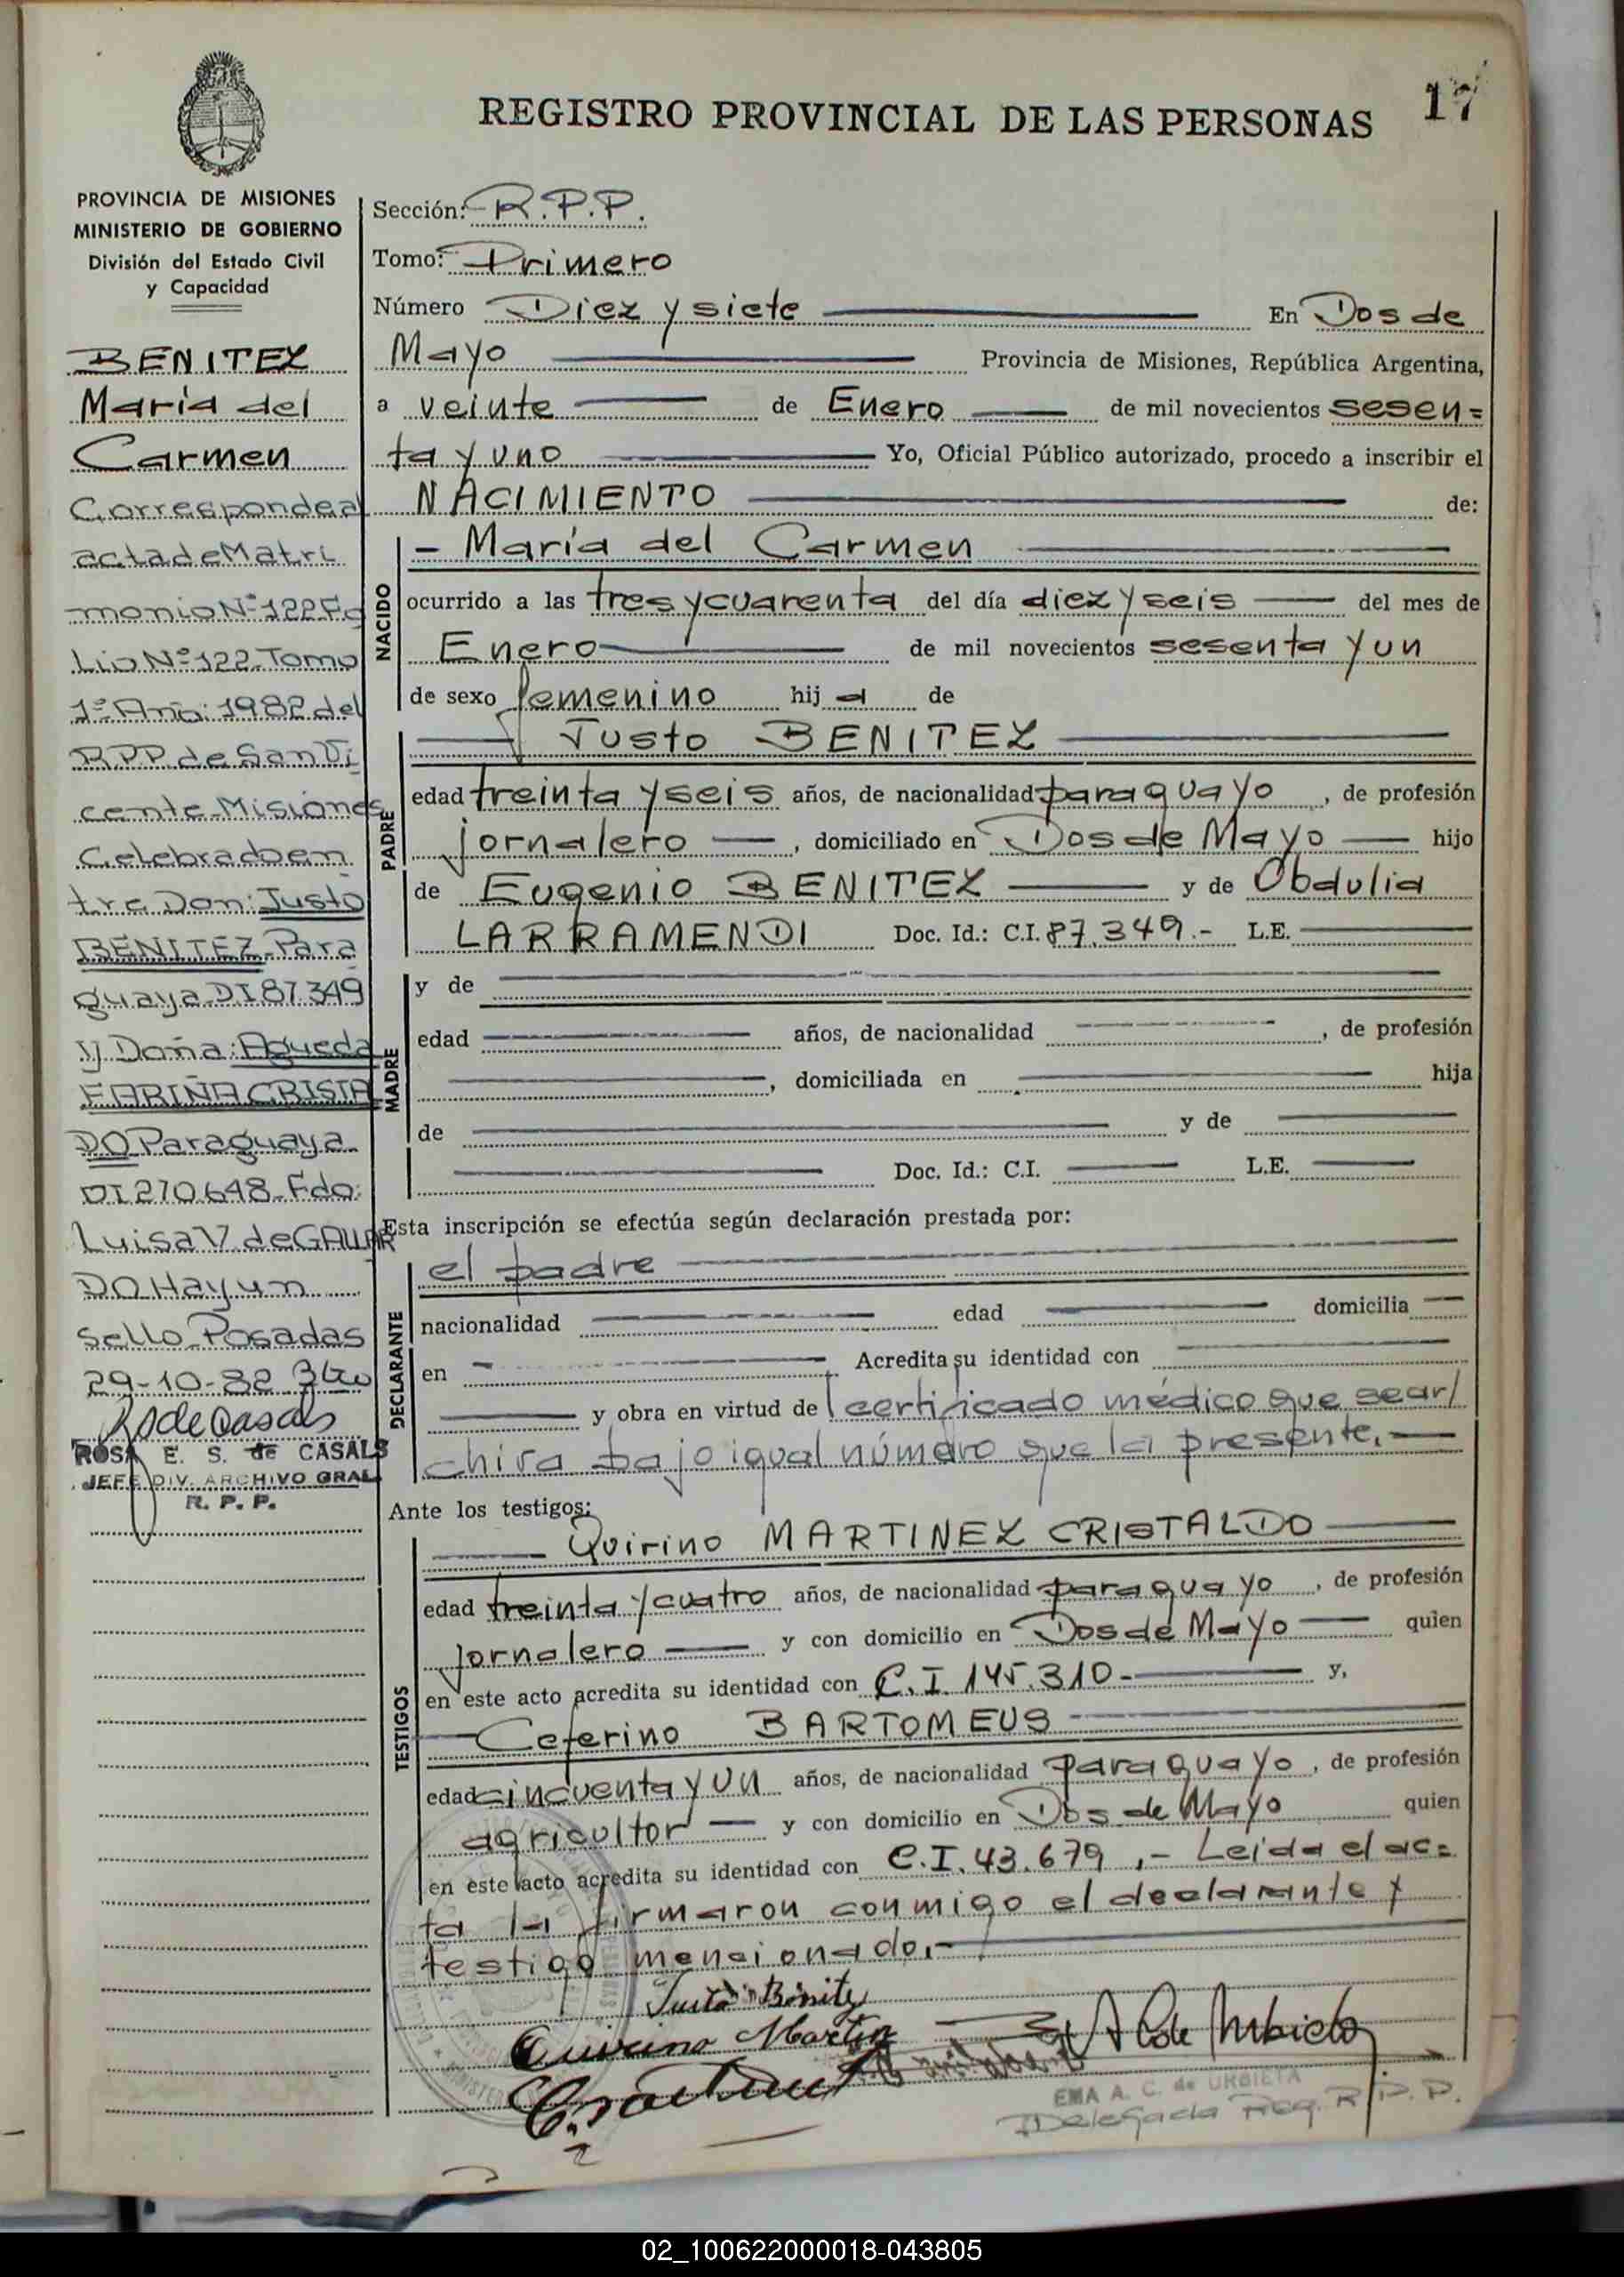 REGISTRO PROVINCIAL DE LAS PERSONAS
17
PROVINCIA DE MISIONES
MINISTERIO DE GOBIERNO
División del Estado Civil
y Capacidad
BENITEZ
María del
Carmen
Corresponde al
acta de Matri
monio Nº 122 Fo
lio Nº 122 Tomo
1º Año: 1982 del
R.P.P. de San Vi
cente Misiones
Celebrado en
tre Don: Justo
BENITEZ Para
guaya DI 87349
y Doña: Agueda
FARIÑA CRISTA
DO Paraguaya
DI 270.648 Fdo:
Luisa V. de GALLAR
DO Hay un
sello Posadas
29-10-82
ROSA E. S. de CASALS
JEFE DIV. ARCHIVO GRAL
R. P. P.
Sección: R.P.P.
Tomo: Primero
Número Diez y siete En Dos de
Mayo Provincia de Misiones, República Argentina,
a veinte de Enero de mil novecientos sesen=
ta y uno Yo, Oficial Público autorizado, procedo a inscribir el
NACIMIENTO de:
NACIDO
- María del Carmen
ocurrido a las tres y cuarenta del día diez y seis del mes de
Enero de mil novecientos sesenta y un
de sexo femenino hija de
PADRE
Justo BENITEZ
edad treinta y seis años, de nacionalidad paraguayo, de profesión
jornalero, domiciliado en Dos de Mayo hijo
de Eugenio BENITEZ y de Obdulia
LARRAMENDI Doc. Id.: C.I. 87.349.- L.E.
MADRE
y de
edad años, de nacionalidad , de profesión
, domiciliada en hija
de y de
Doc. Id.: C.I. L.E.
Esta inscripción se efectúa según declaración prestada por:
DECLARANTE
el padre
nacionalidad edad domicilia
en Acredita su identidad con
y obra en virtud de certificado médico que se ar/
chiva bajo igual número que la presente.
Ante los testigos:
TESTIGOS
Quirino MARTINEZ CRISTALDO
edad treinta y cuatro años, de nacionalidad paraguayo, de profesión
jornalero y con domicilio en Dos de Mayo quien
en este acto acredita su identidad con C.I. 145.310- y,
Ceferino BARTOMEUS
edad cincuenta y un años, de nacionalidad paraguayo, de profesión
agricultor y con domicilio en Dos de Mayo quien
en este acto acredita su identidad con C.I. 43.679,- Leída el ac=
ta la firmaron conmigo el declarante y
testigo mencionado.-
Justo Benitez
Quirino Martinez
EMA A. C. de URBIETA
Delegada Reg. R.P.P.
02_100622000018-043805